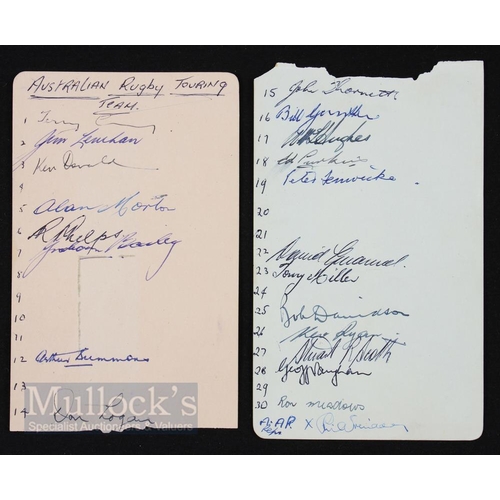 AUSTRALIAN RUGBY TOURING
TEAM.
1 Terry
2 Jim Lenehan
3 Ken Donald
4
5 Alan Morton
6 R Phelps
7 Graham Bailey
8
9
10
11
12 Arthur Summons
13
14 Don Logan
Mullock's
Specialist Auctioneers & Valuers
15 John Thornett
16 Bill Gunther
17 Hughes
18
19 Peter Fenwicke
20
21
22 Daniel Emanuel.
23 Tony Miller
24
25 Bob Davidson
26 Ryan
27 Stuart Scott
28 Geoff Vaughan
29
30 Ron meadows
X